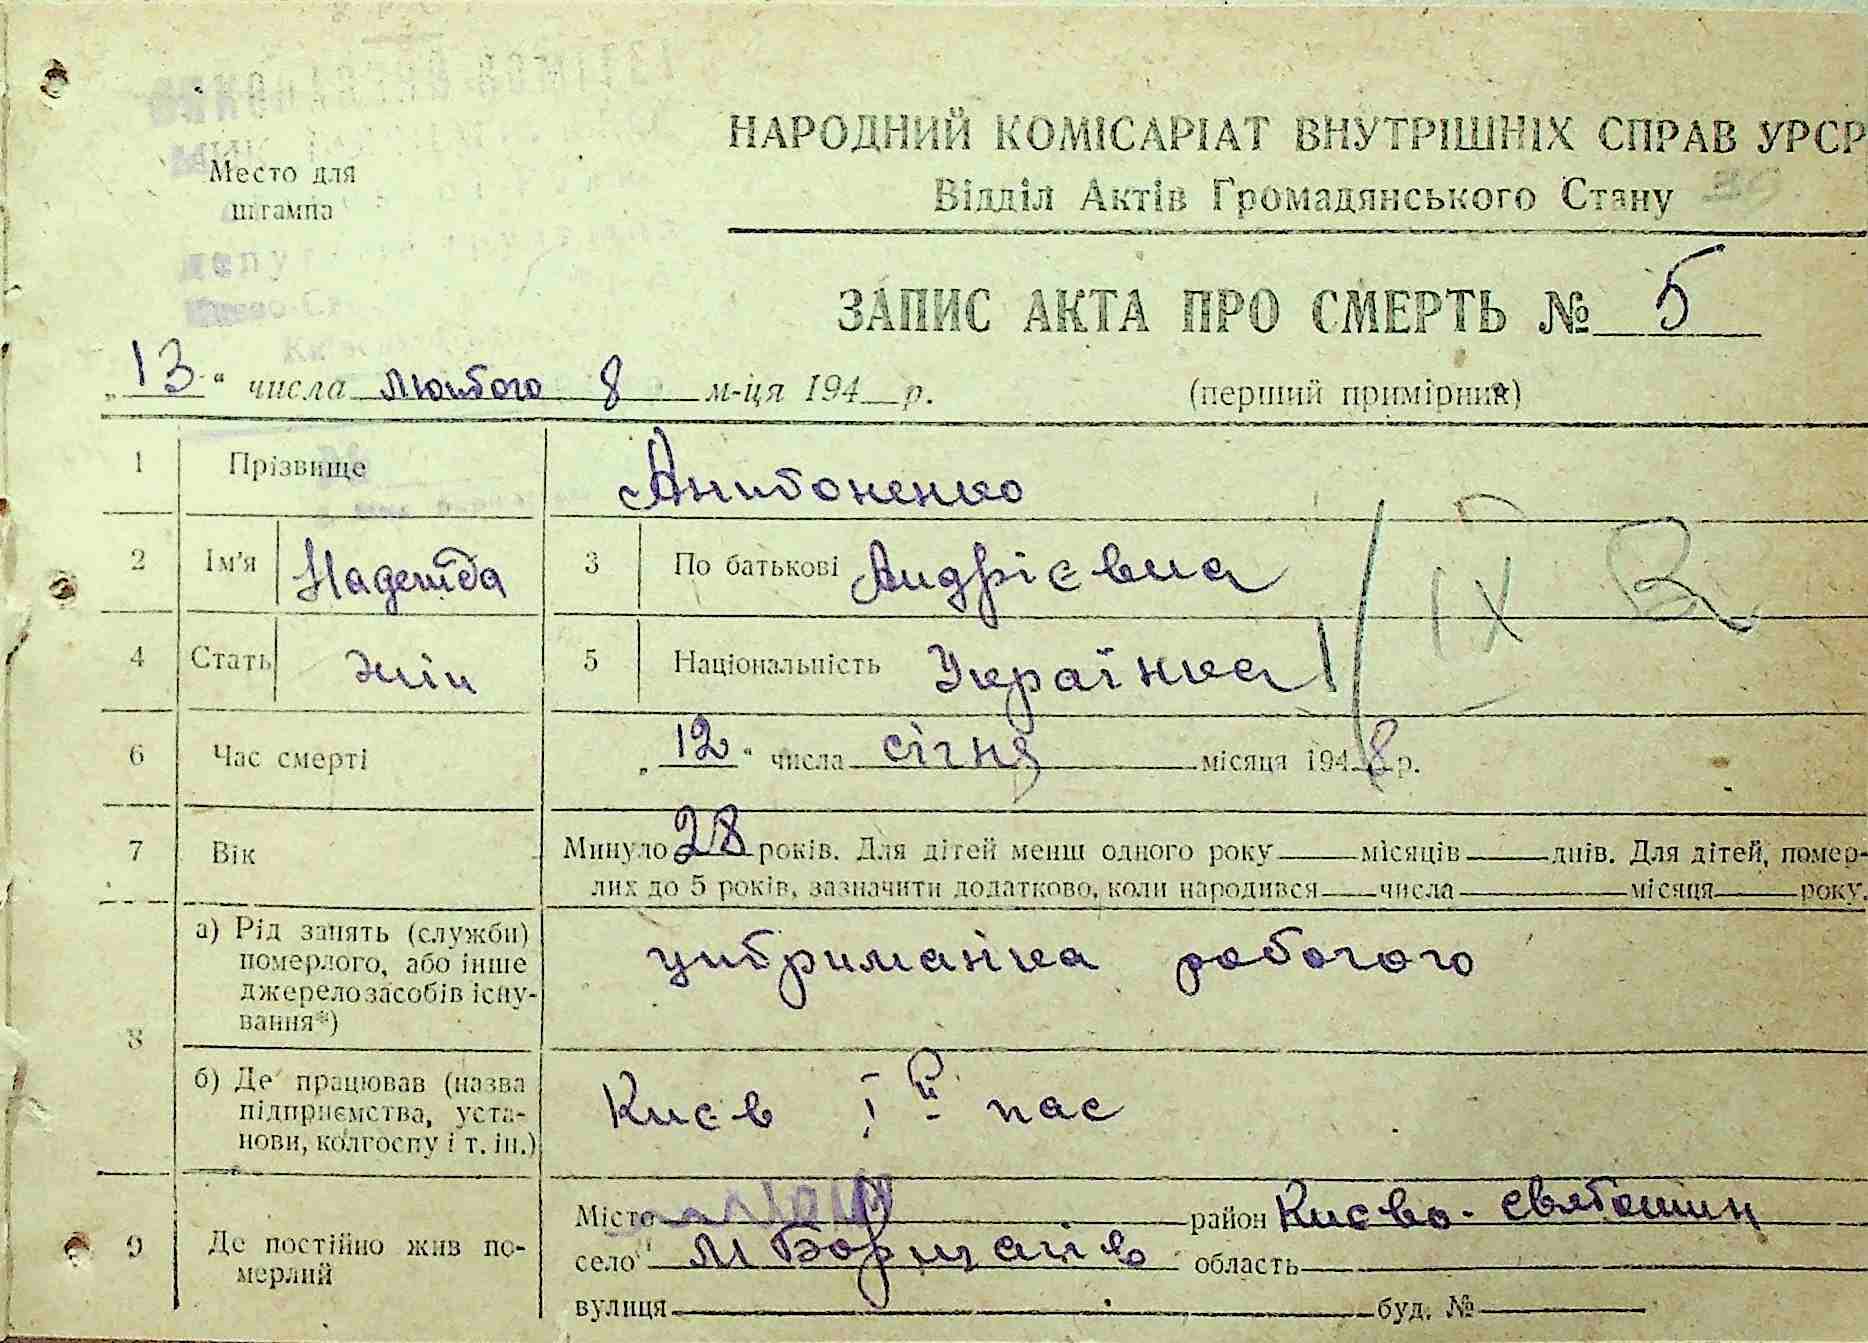 НАРОДНИЙ КОМІСАРІАТ ВНУТРІШНІХ СПРАВ УРСР
Відділ Актів Громадянського Стану
Место для
штампа
ЗАПИС АКТА ПРО СМЕРТЬ № 5
„13“ числа лютого 8 м-ця 194 р. (перший примірник)
1 Прізвище Антоненко
2 Ім'я Надежда 3 По батькові Андрієвна
4 Стать жін 5 Національність Українка
IX
6 Час смерті „12“ числа січня місяця 1948 р.
7 Вік Минуло 28 років. Для дітей менш одного року місяців днів. Для дітей, помер-
лих до 5 років, зазначити додатково, коли народився числа місяця року.
8 а) Рід занять (служби)
померлого, або інше
джерело засобів існу-
вання*)
утриманка робочого
б) Де працював (назва
підприємства, уста-
нови, колгоспу і т. ін.)
Києв
9 Де постійно жив по-
мерлий
Місто район Києво-Святошин
село М Борщагів область
вулиця буд. №